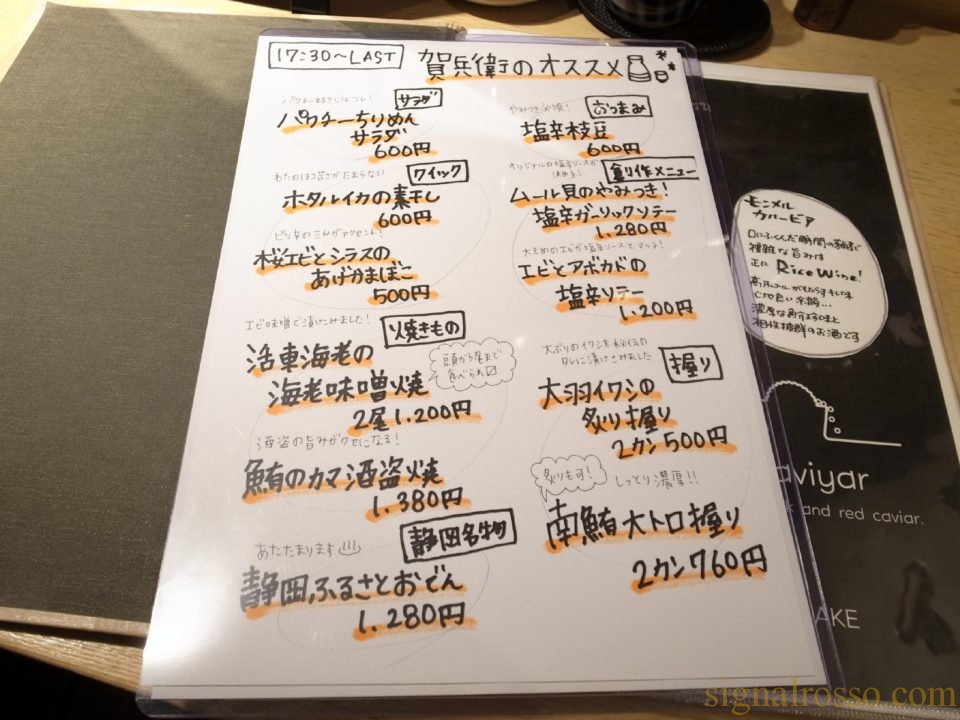 17:30〜LAST
賀兵衛のオススメ
パクチー好きにはコレ!
サラダ
パクチーちりめん
サラダ
600円
わたのほろ苦さがたまらない
クイック
ホタルイカの素干し
600円
ピリ辛の三升がアクセント!
桜エビとシラスの
あげかまぼこ
500円
エビ味噌で漬けこみました!
焼きもの
活車海老の
海老味噌焼
頭から尾まで
食べられ〼
2尾1,200円
酒盗の旨みがクセになる!
鮪のカマ酒盗焼
1,380円
静岡名物
あたたまります
静岡ふるさとおでん
1,280円
やみつき必須!
おつまみ
塩辛枝豆
600円
オリジナルの塩辛ソースが
決め手!
創作メニュー
ムール貝のやみつき!
塩辛ガーリックソテー
1,280円
大きめのエビが塩辛ソースとマッチ!
エビとアボカドの
塩辛ソテー
1,200円
大ぶりのイワシを秘伝の
タレに漬けこみました
握り
大羽イワシの
炙り握り
2カン500円
炙りも可!
しっとり濃厚!!
南鮪大トロ握り
2カン760円
モンメル
カハービア
口にふくんだ瞬間の
複雑な旨みは
正に Rice Wine!
心地良い余韻…
相性抜群のお酒です
aviyar
and red caviar.
AKE
signalrosso.com